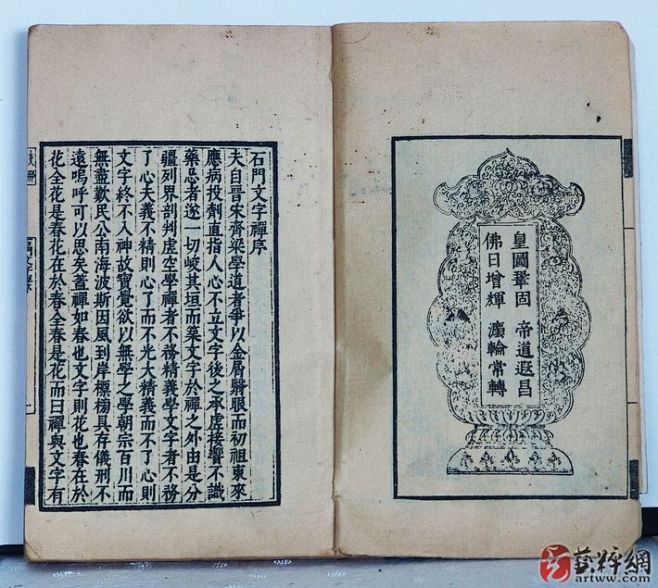 皇圖鞏固 帝道遐昌
佛日增輝 灋輪常轉
石門文字禪序
夫自晉宋齊梁學道者爭以金屑翳眼而初祖東來
應病投劑直指人心不立文字後之承虛接響不識
藥忌者遂一切峻其垣而築文字於禪之外由是分
疆列界剖判虛空學禪者不務精義學文字者不務
了心夫義不精則心了而不光大精義而不了心則
文字終不入神故寶覺欲以無學之學朝宗百川而
無盡歎民公南海波斯因風到岸標榜具存儀刑不
遠嗚呼可以思矣蓋禪如春也文字則花也春在於
花全花是春花在於春全春是花而曰禪與文字有
藝粹網
artww.com